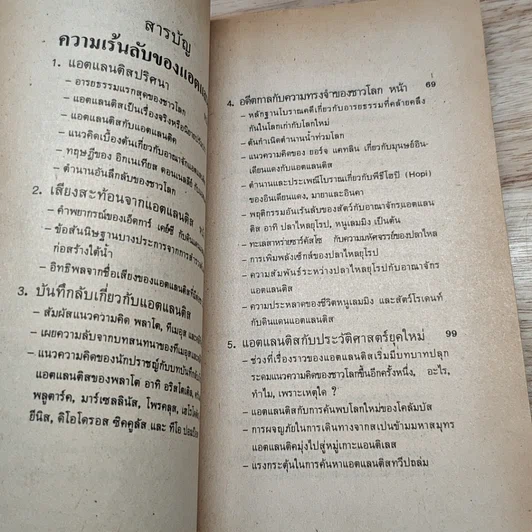 สารบัญ
ความเร้นลับของแอตแลน
1. แอตแลนติสปริศนา
– อารยธรรมแรกสุดของชาวโลก
– แอตแลนติสเป็นเรื่องจริงหรือ
– แอตแลนติสกับแอตแลนติค
– แนวคิดเบื้องต้นเกี่ยวกับอาณาจักรแอตแลน
– ทฤษฎีของ อิกเนเทียส ดอนเนลลี่
– ตำนานอันลึกลับของชาวโลก
2. เสียงสะท้อนจากแอตแลนติส
– คำพยากรณ์ของเอ็ดการ์ เคย์ซี กับดินแดน
– ข้อสันนิษฐานบางประการจากการสำรวจ
ก่อสร้างใต้น้ำ
– อิทธิพลจากชื่อเสียงของแอตแลนติส
3. บันทึกลับเกี่ยวกับแอตแลนติส
– สัมผัสแนวความคิด พลาโต, ทีเมอุส
– เผยความลับจากบทสนทนาของทีเมอุส
– แนวความคิดของนักปราชญ์กับบทบันทึก
แอตแลนติสของพลาโต อาทิ อริสโตเติล,
พลูตาร์ค, มาร์เซลลินัส, โพรคลุส,
ยีนิส, ดิโอโดรอส ซิคคูลัส และ ทีโอ
4. อดีตกาลกับความทรงจำของชาวโลก หน้า 69
– หลักฐานโบราณคดีเกี่ยวกับอารยธรรมที่คล้ายคลึง
กันในโลกเก่ากับโลกใหม่
– ต้นกำเนิดตำนานน้ำท่วมโลก
– แนวความคิดของ ยอร์จ แคทลิน เกี่ยวกับมนุษย์อิน-
เดียนแดงกับแอตแลนติส
– ตำนานและประเพณีโบราณเกี่ยวกับพิธีโฮปี (Hopi)
ของอินเดียแดง, มายาและอินคา
– พฤติกรรมอันเร้นลับของสัตว์กับอาณาจักรแอตแลน
ติส อาทิ ปลาไหลยุโรป, หนูเลมมิง เป็นต้น
– ทะเลสาหร่ายซาร์คัสโซ กับความมหัศจรรย์ของปลาไหล
– การเพิ่มพลังเซ็กส์ของปลาไหลยุโรป
– ความสัมพันธ์ระหว่างปลาไหลยุโรปกับอาณาจักร
แอตแลนติส
– ความประหลาดของชีวิตหนูเลมมิง และสัตว์โรเดนท์
กับดินแดนแอตแลนติส
5. แอตแลนติสกับประวัติศาสตร์ยุคใหม่ 99
– ช่วงที่เรื่องราวของแอตแลนติสเริ่มมีบทบาทปลุก
ระดมแนวความคิดของชาวโลกขึ้นอีกครั้งหนึ่ง, อะไร,
ทำไม, เพราะเหตุใด ?
– แอตแลนติสกับการค้นพบโลกใหม่ของโคลัมบัส
– การผจญภัยในการเดินทางจากสเปนข้ามมหาสมุทร
แอตแลนติคมุ่งไปสู่หมู่เกาะแอนติเลส
– แรงกระตุ้นในการค้นหาแอตแลนติสทวีปถล่ม